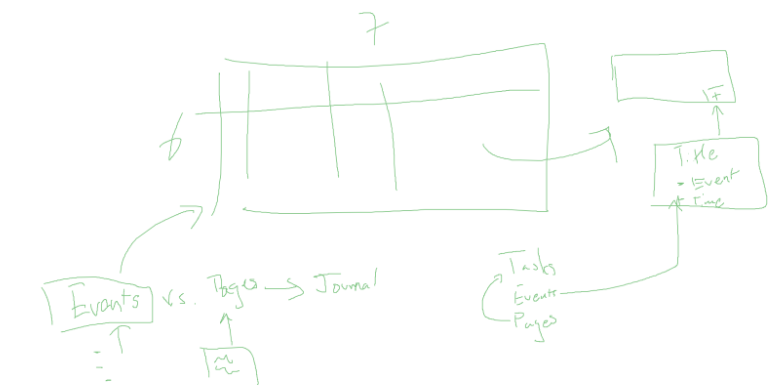 7
Title
- Event
time
Events vs. Pages → Journal
Tasks
Events
Pages